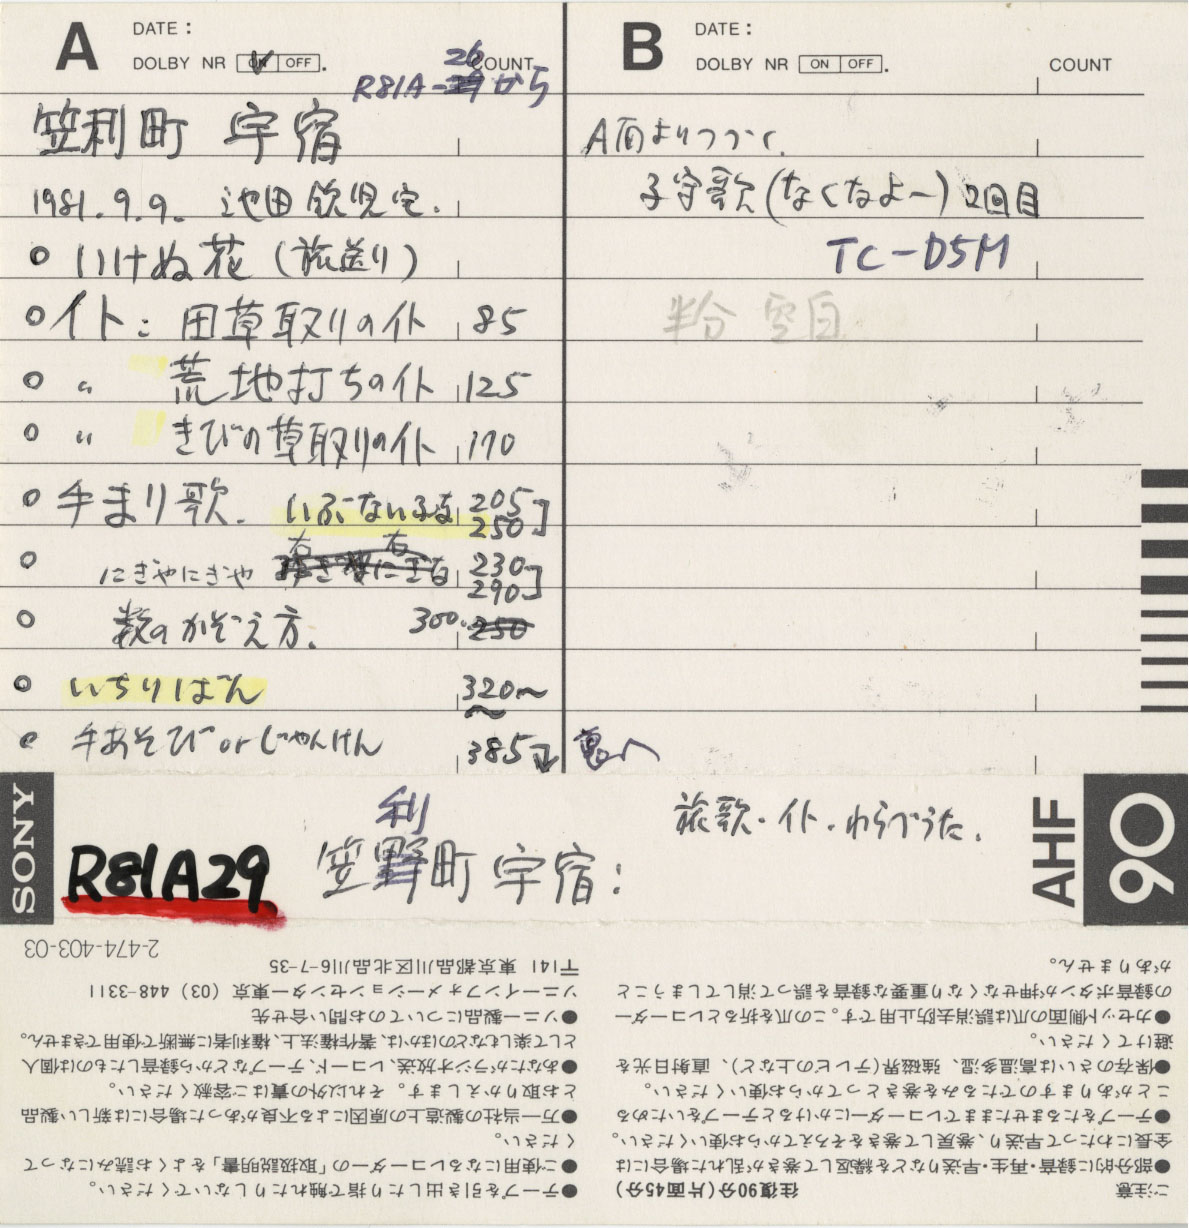 A
DATE:
DOLBY NR ON OFF.
COUNT
26
R81A-29から
笠利町 宇宿
1981.9.9. 池田 宅.
○ いけぬ花 (旅送り)
○ イト: 田草取りのイト 85
○ 〃 荒地打ちのイト 125
○ 〃 きびの草取りのイト 170
○ 手まり歌. いぶないぶな 205
250
右 右
○ にぎやにぎや 230
290
○ 数のかぞえ方. 300. 250
○ いちりばん 320〜
手あそび or じゃんけん 385
B
DATE:
DOLBY NR ON OFF.
COUNT
A面よりつづく.
子守歌(なくなよ〜) 2回目
TC-D5M
半分 空白
裏へ
SONY
R81A29
利
笠野町 宇宿:
旅歌・イト・わらべうた.
AHF
90
ご注意 往復90分(片面45分)
●部分的に録音・再生・早送りなどを繰返して巻きが乱れた場合には
全長にわたって早送り、巻戻して巻きをそろえてからお使いください。
●テープをたるませたままでレコーダーにかけるとテープをいためる
ことがありますのでたるみを巻きとってからお使いください。
●保存のさいは高温多湿、強磁界(テレビの上など)、直射日光を
避けてください。
●カセット側面の爪は誤消去防止用です。この爪を折るとレコーダー
の録音ボタンが押せなくなり重要な録音を誤って消してしまうこと
がありません。
●テープを引き出したり指で触れたりしないでください。
●ご使用になるレコーダーの「取扱説明書」をよくお読みになって
ください。
●万一当社の製造上の原因による不良があった場合には新しい製品
とお取りかえします。それ以外の責はご容赦ください。
●あなたがラジオ放送、レコード、テープなどから録音したものは個人
として楽しむなどのほかは、著作権法上、権利者に無断で使用できません。
●ソニー製品についてのお問い合せ先
ソニーインフォメーションセンター東京 (03) 448-3311
〒141 東京都品川区北品川6-7-35
2-474-403-03